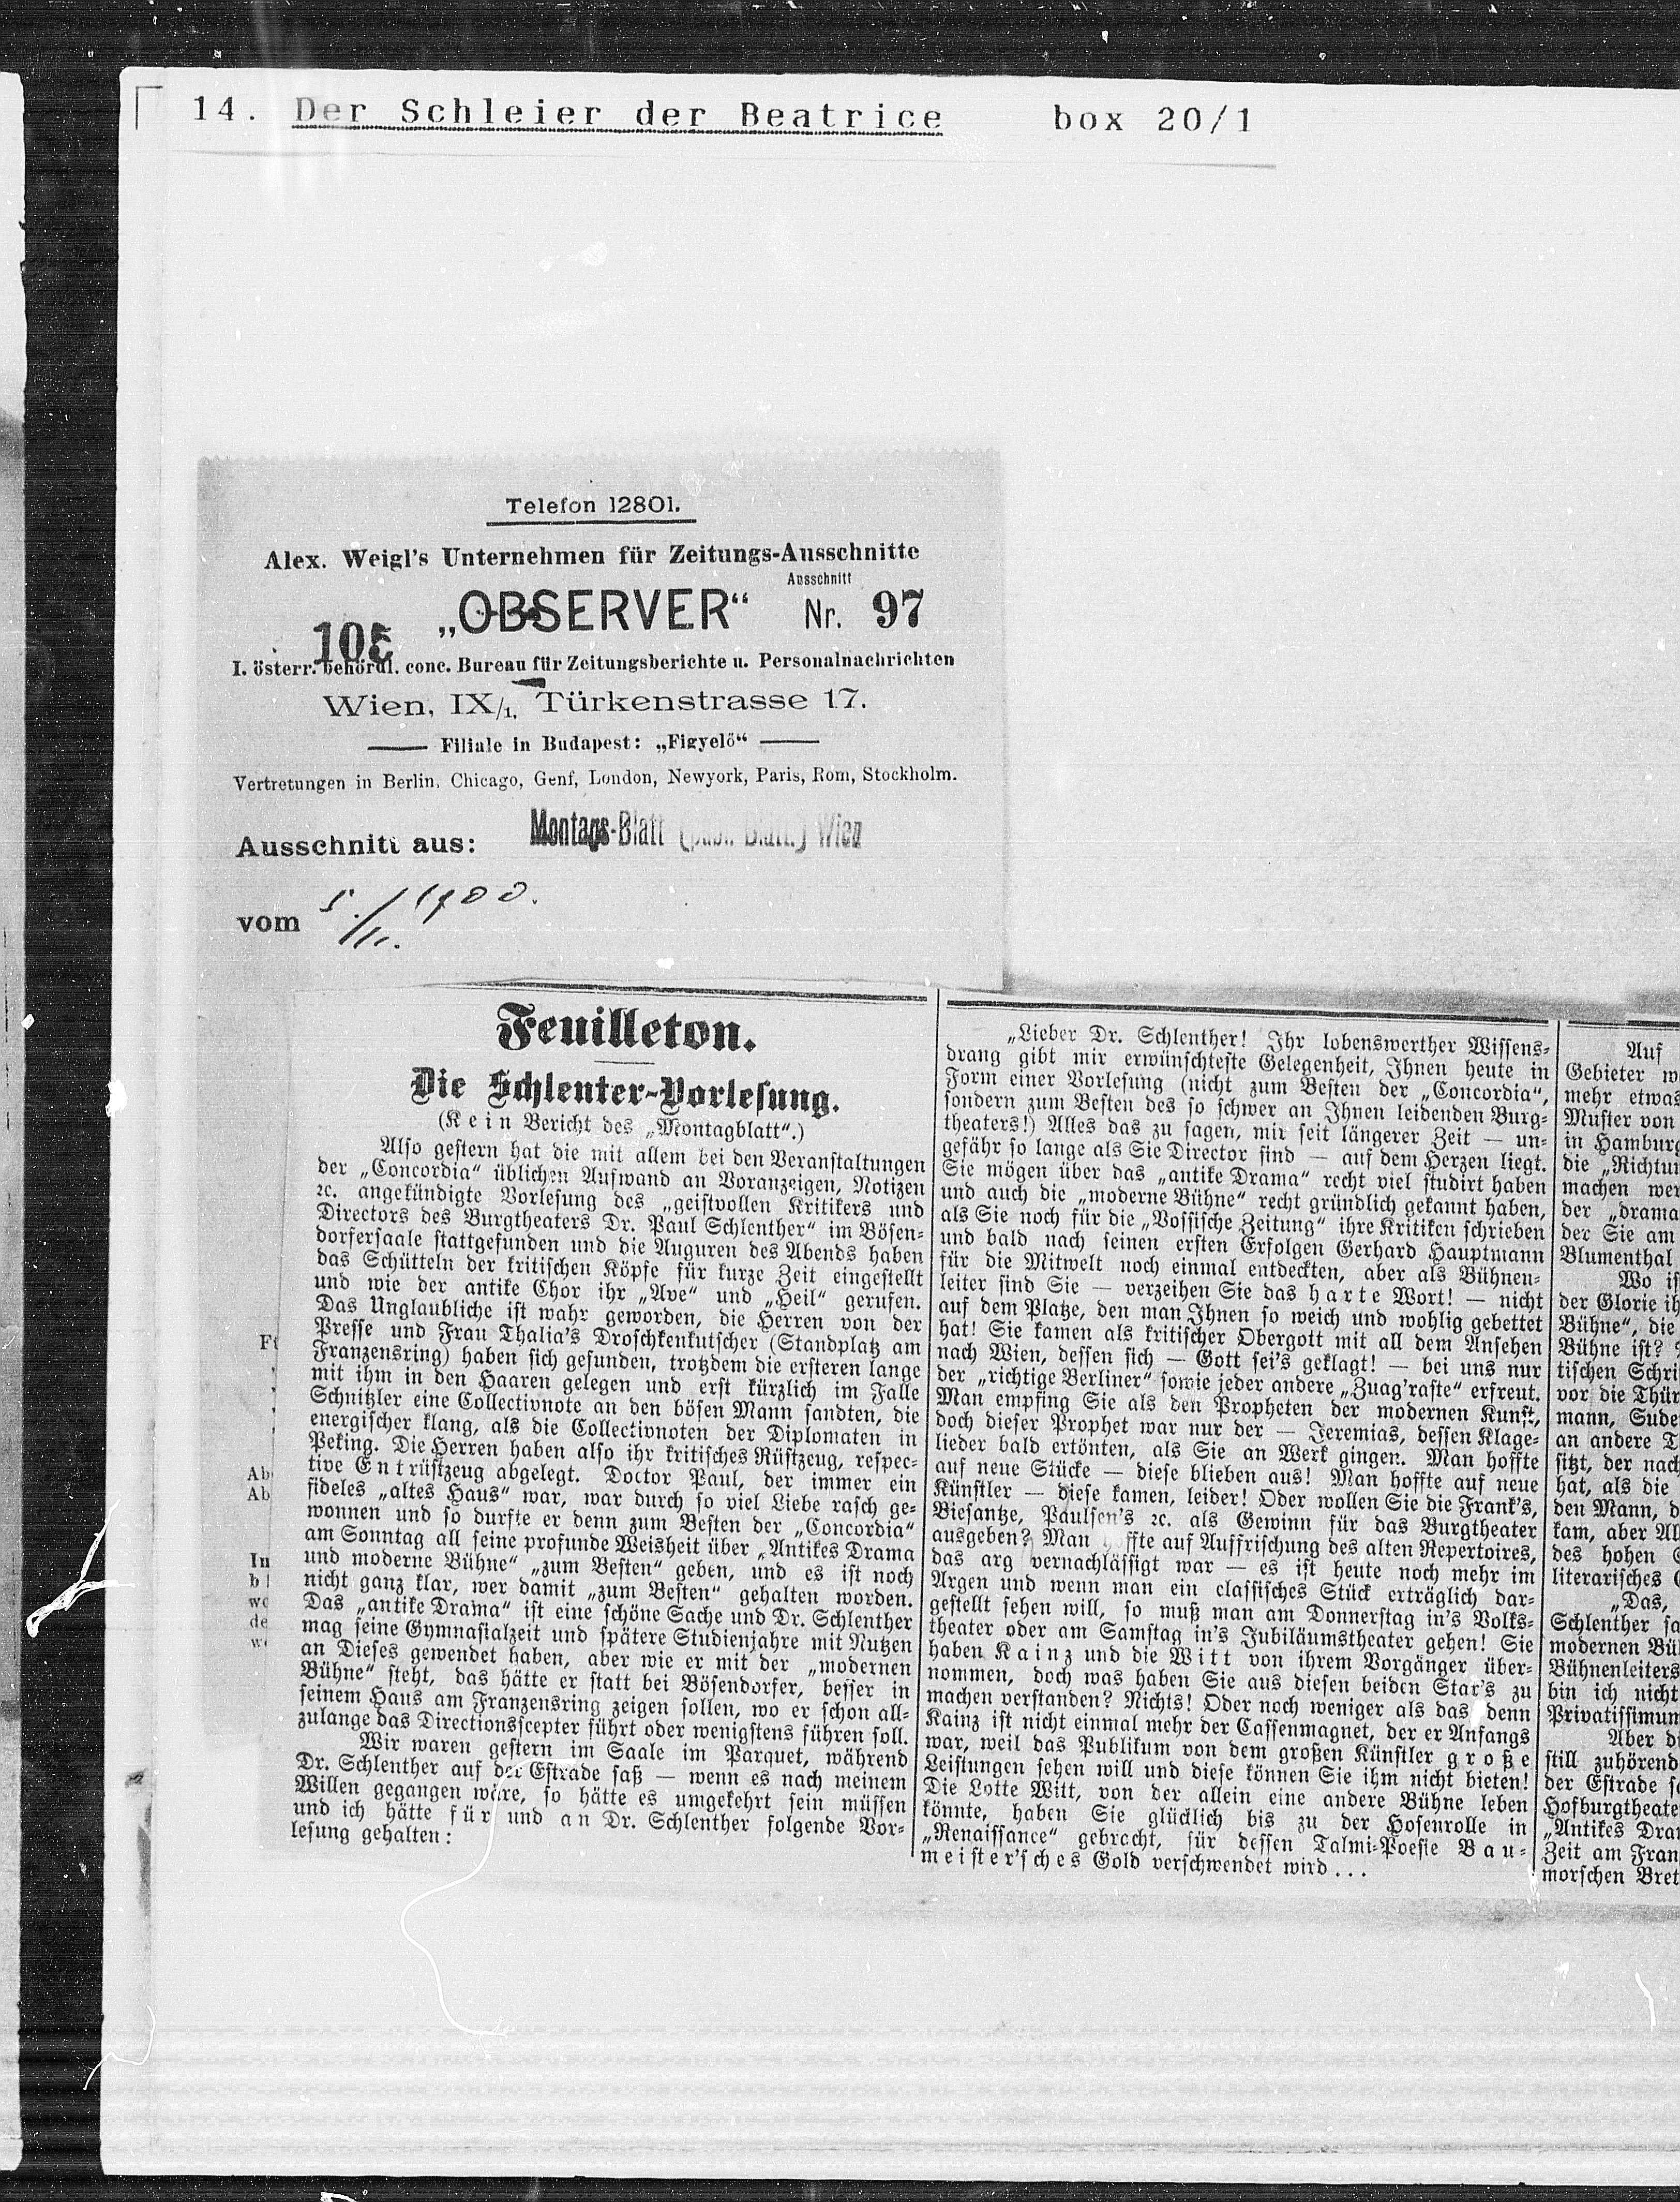 14. Der Schleier der Beatrice box 20/1
Telefon 12801.
Alex. Weigl's Unternehmen für Zeitungs-Ausschnitte
Ausschnitt
„OBSERVER“ Nr. 97
I. österr. behördl. conc. Bureau für Zeitungsberichte u. Personalnachrichten
Wien, IX/1, Türkenstrasse 17.
Filiale in Budapest: „Figyelő“
Vertretungen in Berlin, Chicago, Genf, London, Newyork, Paris, Rom, Stockholm.
Ausschnitt aus: Montags-Blatt Wien
vom 5./11. 1900.
Feuilleton.
Die Schlenter-Vorlesung.
(Kein Bericht des „Montagblatt“.)
Also gestern hat die mit allem bei den Veranstaltungen
der „Concordia“ üblichen Aufwand an Voranzeigen, Notizen
ꝛc. angekündigte Vorlesung des „geistvollen Kritikers und
Directors des Burgtheaters Dr. Paul Schlenther“ im Bösen-
dorfersaale stattgefunden und die Auguren des Abends haben
das Schütteln der kritischen Köpfe für kurze Zeit eingestellt
und wie der antike Chor ihr „Ave“ und „Heil“ gerufen.
Das Unglaubliche ist wahr geworden, die Herren von der
Presse und Frau Thalia's Droschkenkutscher (Standplatz am
Franzensring) haben sich gefunden, trotzdem die ersteren lange
mit ihm in den Haaren gelegen und erst kürzlich im Falle
Schnitzler eine Collectivnote an den bösen Mann sandten, die
energischer klang, als die Collectivnoten der Diplomaten in
Peking. Die Herren haben also ihr kritisches Rüstzeug, respec-
tive Entrüstzeug abgelegt. Doctor Paul, der immer ein
fideles „altes Haus“ war, war durch so viel Liebe rasch ge-
wonnen und so durfte er denn zum Besten der „Concordia“
am Sonntag all seine profunde Weisheit über „Antikes Drama
und moderne Bühne“ „zum Besten“ geben, und es ist noch
nicht ganz klar, wer damit „zum Besten“ gehalten worden.
Das „antike Drama“ ist eine schöne Sache und Dr. Schlenther
mag seine Gymnasialzeit und spätere Studienjahre mit Nutzen
an Dieses gewendet haben, aber wie er mit der „modernen
Bühne“ steht, das hätte er statt bei Bösendorfer, besser in
seinem Haus am Franzensring zeigen sollen, wo er schon all-
zulange das Directionsscepter führt oder wenigstens führen soll.
Wir waren gestern im Saale im Parquet, während
Dr. Schlenther auf der Estrade saß — wenn es nach meinem
Willen gegangen wäre, so hätte es umgekehrt sein müssen
und ich hätte für und an Dr. Schlenther folgende Vor-
lesung gehalten:
„Lieber Dr. Schlenther! Ihr lobenswerther Wissens-
drang gibt mir erwünschteste Gelegenheit, Ihnen heute in
Form einer Vorlesung (nicht zum Besten der „Concordia“,
sondern zum Besten des so schwer an Ihnen leidenden Burg-
theaters!) Alles das zu sagen, mir seit längerer Zeit — un-
gefähr so lange als Sie Director sind — auf dem Herzen liegt.
Sie mögen über das „antike Drama“ recht viel studirt haben
und auch die „moderne Bühne“ recht gründlich gekannt haben,
als Sie noch für die „Vossische Zeitung“ ihre Kritiken schrieben
und bald nach seinen ersten Erfolgen Gerhard Hauptmann
für die Mitwelt noch einmal entdeckten, aber als Bühnen-
leiter sind Sie — verzeihen Sie das harte Wort! — nicht
auf dem Platze, den man Ihnen so weich und wohlig gebettet
hat! Sie kamen als kritischer Obergott mit all dem Ansehen
nach Wien, dessen sich — Gott sei's geklagt! — bei uns nur
der „richtige Berliner“ sowie jeder andere „Zuag'raste“ erfreut.
Man empfing Sie als den Propheten der modernen Kunst,
doch dieser Prophet war nur der — Jeremias, dessen Klage-
lieder bald ertönten, als Sie an Werk gingen. Man hoffte
auf neue Stücke — diese blieben aus! Man hoffte auf neue
Künstler — diese kamen, leider! Oder wollen Sie die Frank's,
Biesantze, Paulsen's ꝛc. als Gewinn für das Burgtheater
ausgeben? Man hoffte auf Auffrischung des alten Repertoires,
das arg vernachlässigt war — es ist heute noch mehr im
Argen und wenn man ein classisches Stück erträglich dar-
gestellt sehen will, so muß man am Donnerstag in's Volks-
theater oder am Samstag in's Jubiläumstheater gehen! Sie
haben Kainz und die Witt von ihrem Vorgänger über-
nommen, doch was haben Sie aus diesen beiden Star's zu
machen verstanden? Nichts! Oder noch weniger als das, denn
Kainz ist nicht einmal mehr der Cassenmagnet, der er Anfangs
war, weil das Publikum von dem großen Künstler große
Leistungen sehen will und diese können Sie ihm nicht bieten!
Die Lotte Witt, von der allein eine andere Bühne leben
könnte, haben Sie glücklich bis zu der Hosenrolle in
„Renaissance“ gebracht, für dessen Talmi-Poesie Bau-
meister'sches Gold verschwendet wird . . .
Auf
Gebieter
mehr etwas
Muster von
in Hamburg
die „Richtun
machen
der „drama
der Sie am
Blumenthal
Wo
der Glorie
Bühne“, die
Bühne ist?
tischen
vor die Thür
mann,
an andere
sitzt, der
hat, als die
den Mann,
kam, aber
des hohen
literarisches
„Das,
Schlenther
modernen
Bühnenleiters
bin ich nicht
Privatissimum
Aber
still zuhörend
der Estrade
Hofburgtheate
„Antikes
Zeit am
morschen